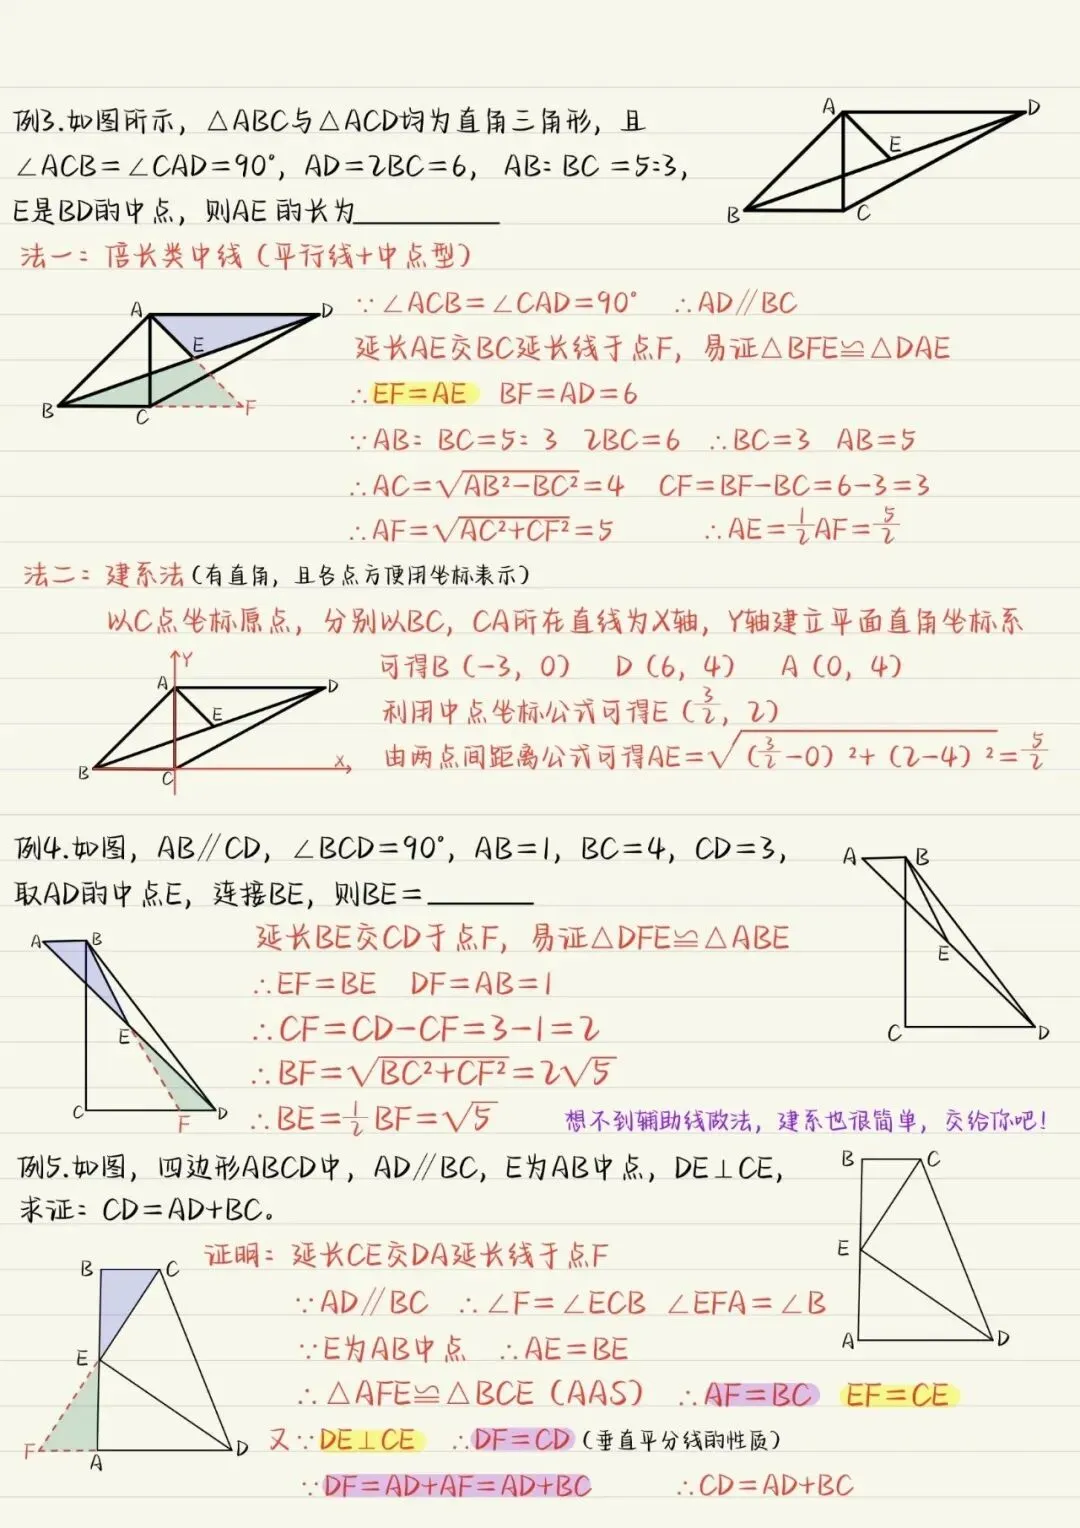 例3.如图所示，△ABC与△ACD均为直角三角形，且
∠ACB=∠CAD=90°，AD=2BC=6，AB：BC=5:3，
E是BD的中点，则AE的长为________
A D E B C
法一：倍长类中线（平行线+中点型）
A D E B C F
∵∠ACB=∠CAD=90° ∴AD∥BC
延长AE交BC延长线于点F，易证△BFE≌△DAE
∴EF=AE BF=AD=6
∵AB：BC=5：3 2BC=6 ∴BC=3 AB=5
∴AC=√(AB²-BC²)=4 CF=BF-BC=6-3=3
∴AF=√(AC²+CF²)=5 ∴AE=1/2AF=5/2
法二：建系法（有直角，且各点方便用坐标表示）
以C点坐标原点，分别以BC，CA所在直线为X轴，Y轴建立平面直角坐标系
Y A D E B C X
可得B（-3，0） D（6，4） A（0，4）
利用中点坐标公式可得E（3/2，2）
由两点间距离公式可得AE=√(（3/2-0）²+（2-4）²)=5/2
例4.如图，AB∥CD，∠BCD=90°，AB=1，BC=4，CD=3，
取AD的中点E，连接BE，则BE=________
A B E C D
A B E C F D
延长BE交CD于点F，易证△DFE≌△ABE
∴EF=BE DF=AB=1
∴CF=CD-CF=3-1=2
∴BF=√(BC²+CF²)=2√5
∴BE=1/2BF=√5
想不到辅助线做法，建系也很简单，交给你吧！
例5.如图，四边形ABCD中，AD∥BC，E为AB中点，DE⊥CE，
求证：CD=AD+BC。
B C E A D
B C E F A D
证明：延长CE交DA延长线于点F
∵AD∥BC ∴∠F=∠ECB ∠EFA=∠B
∵E为AB中点 ∴AE=BE
∴△AFE≌△BCE（AAS） ∴AF=BC EF=CE
又∵DE⊥CE ∴DF=CD（垂直平分线的性质）
∵DF=AD+AF=AD+BC ∴CD=AD+BC